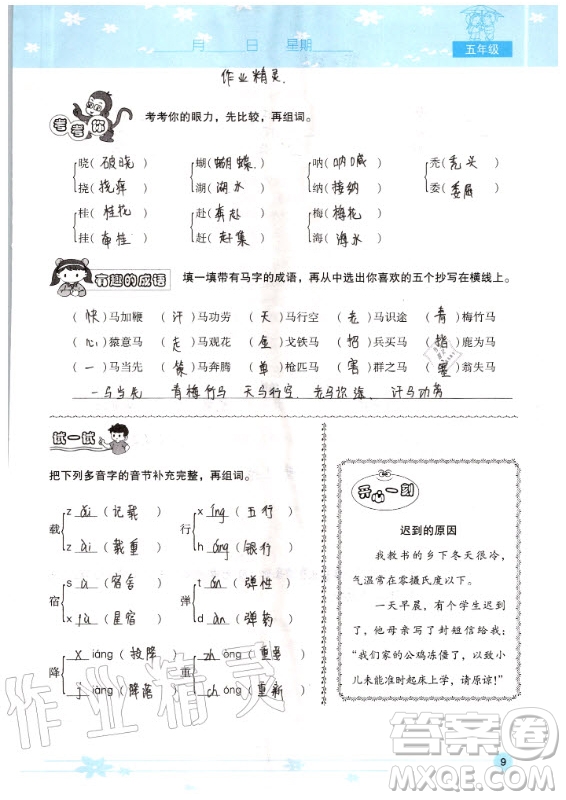 月 日 星期
五年级
作业精灵.
考考你
考考你的眼力，先比较，再组词。
晓（破晓） 蝴（蝴蝶） 呐（呐喊） 秃（秃头）
挠（挠痒） 湖（湖水） 纳（接纳） 委（委屈）
桂（桂花） 赴（奔赴） 梅（梅花）
挂（ 挂） 赶（赶集） 海（海水）
有趣的成语
填一填带有马字的成语，再从中选出你喜欢的五个抄写在横线上。
（快）马加鞭 （汗）马功劳 （天）马行空 （老）马识途 （青）梅竹马
（心）猿意马 （走）马观花 （金）戈铁马 （招）兵买马 （指）鹿为马
（一）马当先 （策）马奔腾 （单）枪匹马 （害）群之马 （塞）翁失马
一马当先 青梅竹马 天马行空 老马识途 汗马功劳
试一试
把下列多音字的音节补充完整，再组词。
载 z ǎi （记载） 行 x íng （五行）
z ài （载重） h áng （银行）
宿 s ù （宿舍） 弹 t án （弹性）
x iù （星宿） d àn （弹药）
降 x iáng （投降） 重 ch óng （重复）
j iàng （降落） ch óng （重新）
开心一刻
迟到的原因
我教书的乡下冬天很冷，
气温常在零摄氏度以下。
一天早晨，有个学生迟到
了，他手上拿